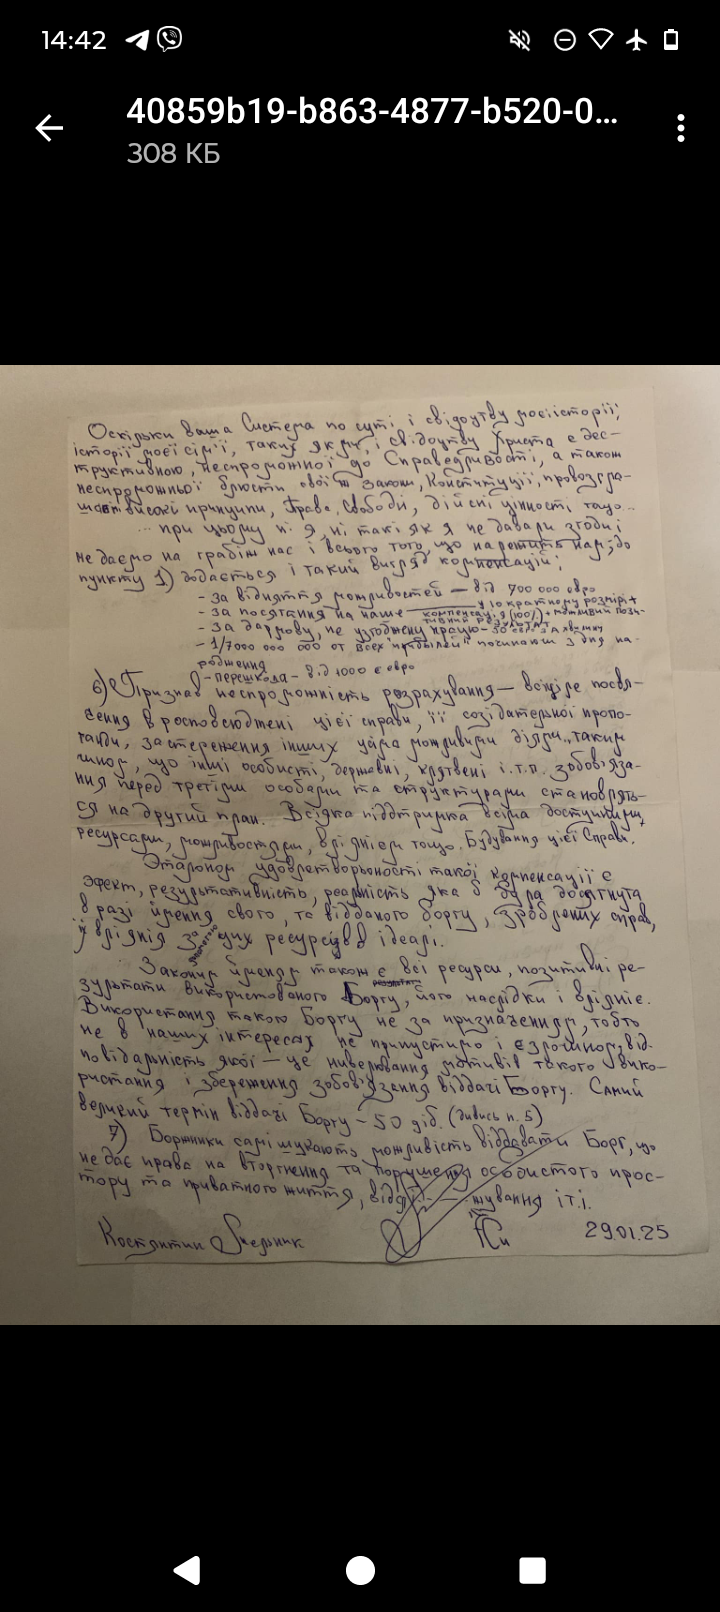 14:42
40859b19-b863-4877-b520-0...
308 КБ
Оскільки ваша Система по суті і свідоцтву моєї історії,
історії моєї сім'ї, таких як ми, і свідоцтву Христа є дес-
труктивною, неспроможної до Справедливості, а також
неспроможньої блюсти свої ж закони, Конституції, провозгла-
шені високі принципи, Права, Свободи, дійсні цінності тощо...
... при цьому ні я, ні такі як я не давали згоди і
не даємо на грабіж нас і всього того, що належить нам; до
пункту 1) додається і такий вигляд компенсацій;
- за відняття можливостей – від 700 000 евро
- за посягання на наше – компенсація (100%) + можливий пози-
у 10 кратному розмірі +
тивний результат
- за дармову, не узгоджену працю – 50 евро за хвилину
- 1/7000 000 000 от всех "прибылей" починаючи з дня на-
родження
- перешкода – від 1000 євро
6) Признав неспроможність розрахування – всеціле посвя-
чення в росповсюджені цієї справи, її созідательної пропо-
ганди, застереження інших цима можливими діями, таким
чином, що інші особисті, державні, клятвені і.т.п. зобов'яза-
ння перед третіми особами та структурами становлять-
ся на другий план. Всіляка підтримка всіма доступними,
ресурсами, можливостями, вліянієм тощо. Будування цієї Справи.
Эталоном удовлетворьоності такої компенсації є
эфект, результативність, реальність яка б була досягнута
в разі імення свого, та відданого боргу, зроблених справ,
їх вліянія за цих ресурсів в ідеалі.
Законим іменям також є всі ресурси, позитивні ре-
зультати використованого Боргу, його наслідки і вліяніє.
Використання такого Боргу не за призначенням, тобто
не в наших інтересах не припустимо і є злочином, від-
повідальність якої – це нивелювання мотивів такого вико-
ристання і збереження зобов'язення віддачі Боргу. Самий
великий термін віддачі Боргу – 50 діб. (дивись п. 5)
7) Боржники самі шукають можливість віддавати Борг, що
не дає права на вторгнення та порушення особистого прос-
тору та приватного життя, і т.і.
Костянтин
29.01.25